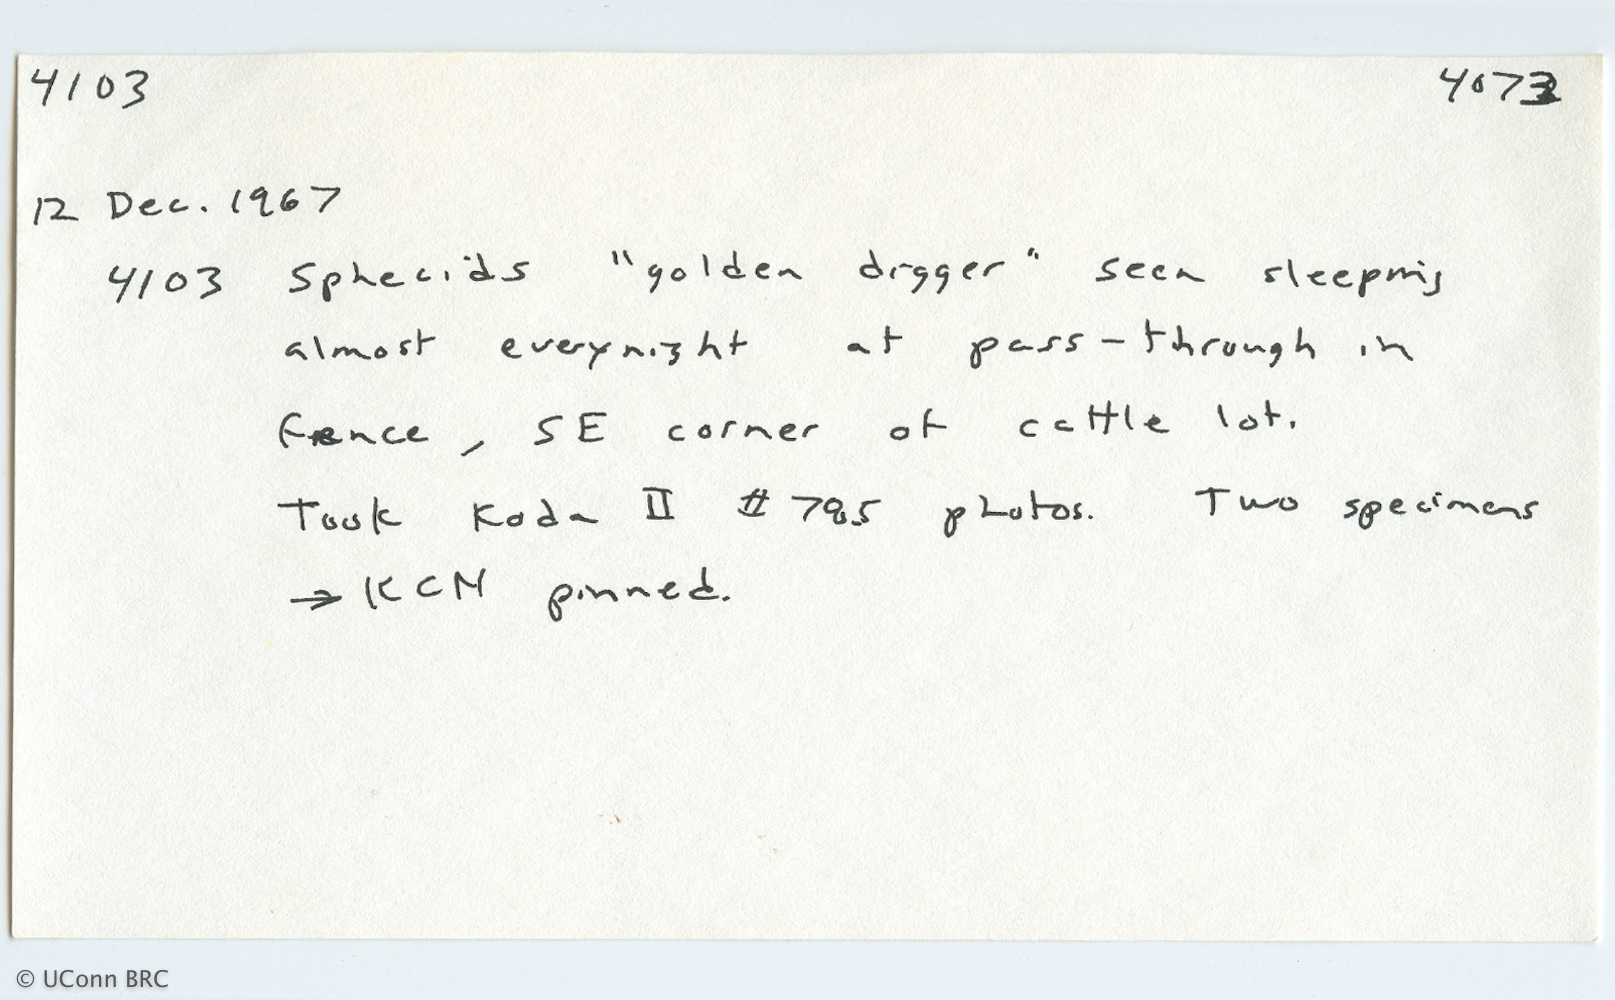 4103 4073
12 Dec. 1967
4103 Sphecids "golden digger" seen sleeping
almost everynight at pass-through in
fence, SE corner of cattle lot.
Took Koda II # 785 photos. Two specimens
→ KCN pinned.
© UConn BRC